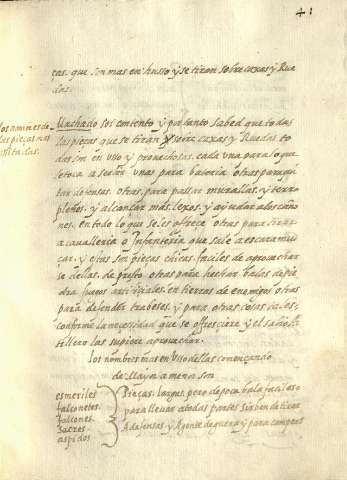 41
cas, que son mas en husso y se tiran sobre caxas y Rue
das.
los nombres de
las pieças mas
Muchado soi contento y por tanto sabed que todas
las pieças que se tiran sobre caxas y Ruedas to
dos son en uso y prouechosas, cada una para lo que
le toca a seruir unas para bateria otras para qui
tar defensas, otras para passar murallas, y terra
plenos, y alcançar mas lexos, y ayudar a los caño
nes, en todo lo que se les offrece otras para tirar
a caualleria o Infanteria que sale a escaramu
çar, y estas son pieças chicas, faciles de aprouechar
se dellas, de presto otras para hechar balas de pie
dra fuegos artificiales, en tierras de enemigo otras
para defender trabeses, y para otras cosas tales,
conforme la necesidad que se offresciere y el
tillero las supiere aprouechar.
los nombres mas en Usso dellas començando
de Maior a menor son
esmeriles
falconetes
falcones
sacres
aspidos
Pieças, largas, pero de poca bala faciles
para lleuar a todas partes siruen de tirar
A defensas, y Agente de guerra y para campos